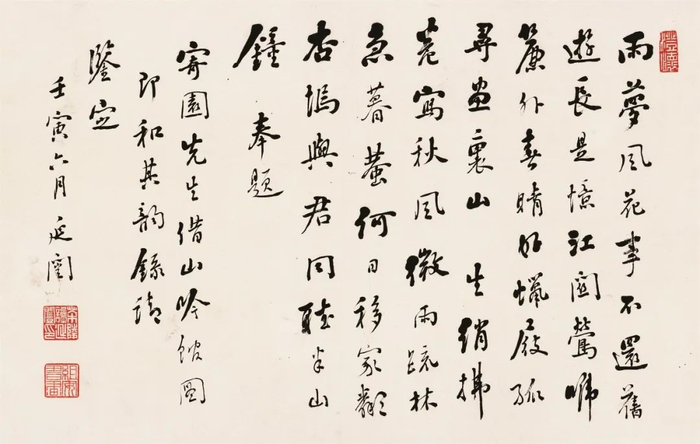 雨夢風花事不還舊
遊長是憶江關鶯啼
簾外春晴好蠟屐孤
尋畫裏山 生綃拂
寫秋風微雨疏林
急暮蛩何日移家鄰
杏塢與君同聽半山
鐘 奉題
寄園先生借山吟館圖
即和其韵錄請
鑒定
壬寅六月延闓